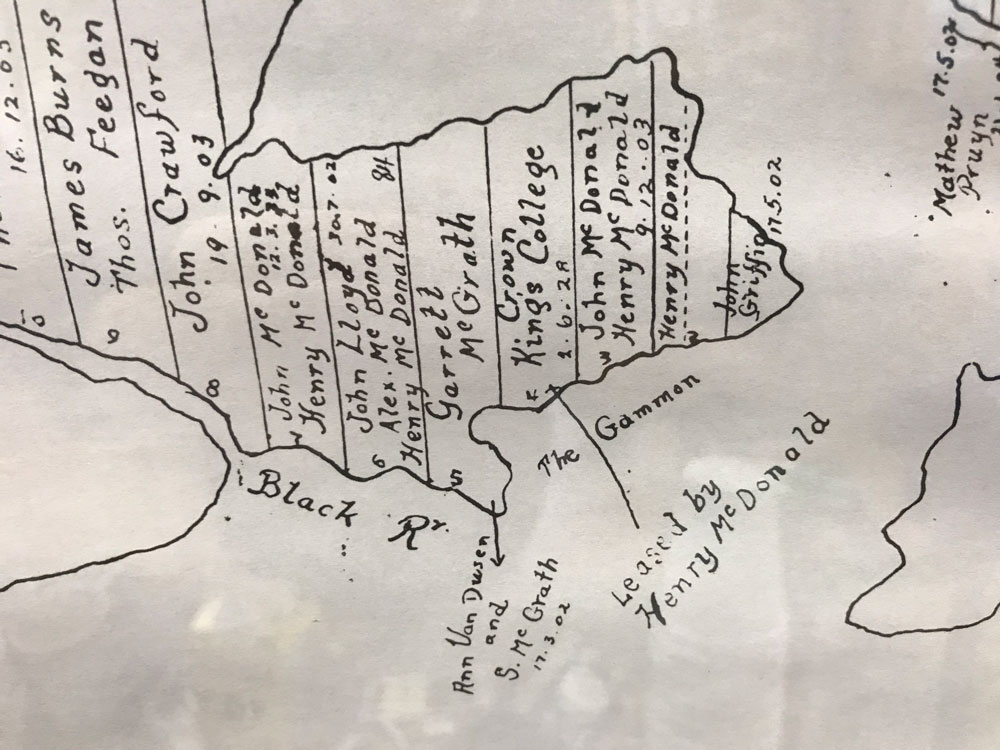 16.12.03
James Burns
Thos. Feegan
9
John Crawford
19 9.03
8
John McDonald
12.3.
Henry McDonald
John Lloyd
Alex. McDonald 84
6
Henry McDonald
Garrett
McGrath
5
Crown
Kings College
2.6.28
John McDonald
Henry McDonald
9.12.03
Henry McDonald
John
Griffin 17.5.02
Mathew 17.5.02
Pruyn
Black Rr.
The Gammon
Leased by
Henry McDonald
Ann Van Dusen
and
S. McGrath
17.3.02